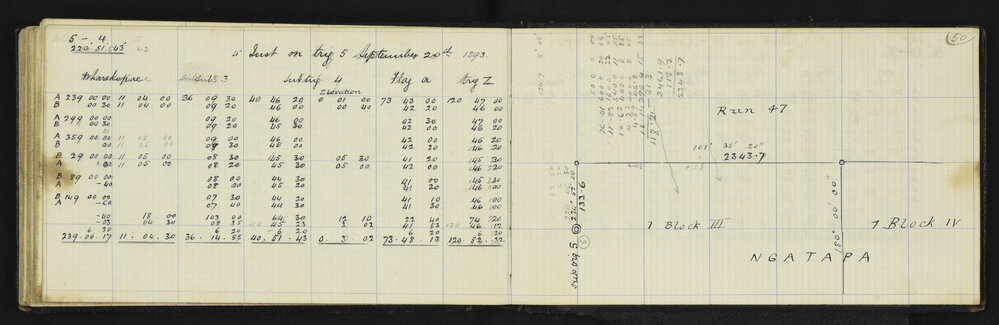 5 - 4
220.51.43
5 Inst on trig 5 September 20th 1893.
Wharekopae Subtrig 3 Subtrig 4 Flag a trig Z
Elevation
A 239 00 00 11 04 00 36 09 30 40 46 20 0 01 00 73 43 00 120 47 00
B 00 30 11 04 00 09 20 46 00 00 40 42 20 46 00
A 299 00 00 09 20 46 00 42 30 47 00
B 00 30 09 20 45 30 42 00 46 20
A 359 00 00 11 05 00 09 00 46 00 42 00 46 20
B 00 11 05 00 08 30 46 00 42 20 46 20
B 29 00 00 11 05 00 08 30 45 30 05 30 41 20 45 30
A 11 05 00 08 20 45 30 05 00 42 00 46 20
B 89 00 00 08 00 44 30 41 00 45 30
A -40 08 00 45 20 41 30 46 00
B 149 00 00 07 30 44 20 41 10 46 00
A -20 07 40 44 20 41 30 46 00
-40 18 00 103 00 64 30 12 10 22 40 74 20
-03 04 30 08 35 40 45 23 3 02 41 53 120 46 12
6 20 6 20 6 20 6 20 6 20
239.06.17 11.04.30 36.14.55 40.51.43 0.3.02 73.48.13 120.52.32
50
Run 47
101° 35' 20"
2343.7
133.6
224° 00' 00"
Subtrig 5
5
1 Block III
180° 00' 00"
7 Block IV
NGATAPA
2343.7
118.2